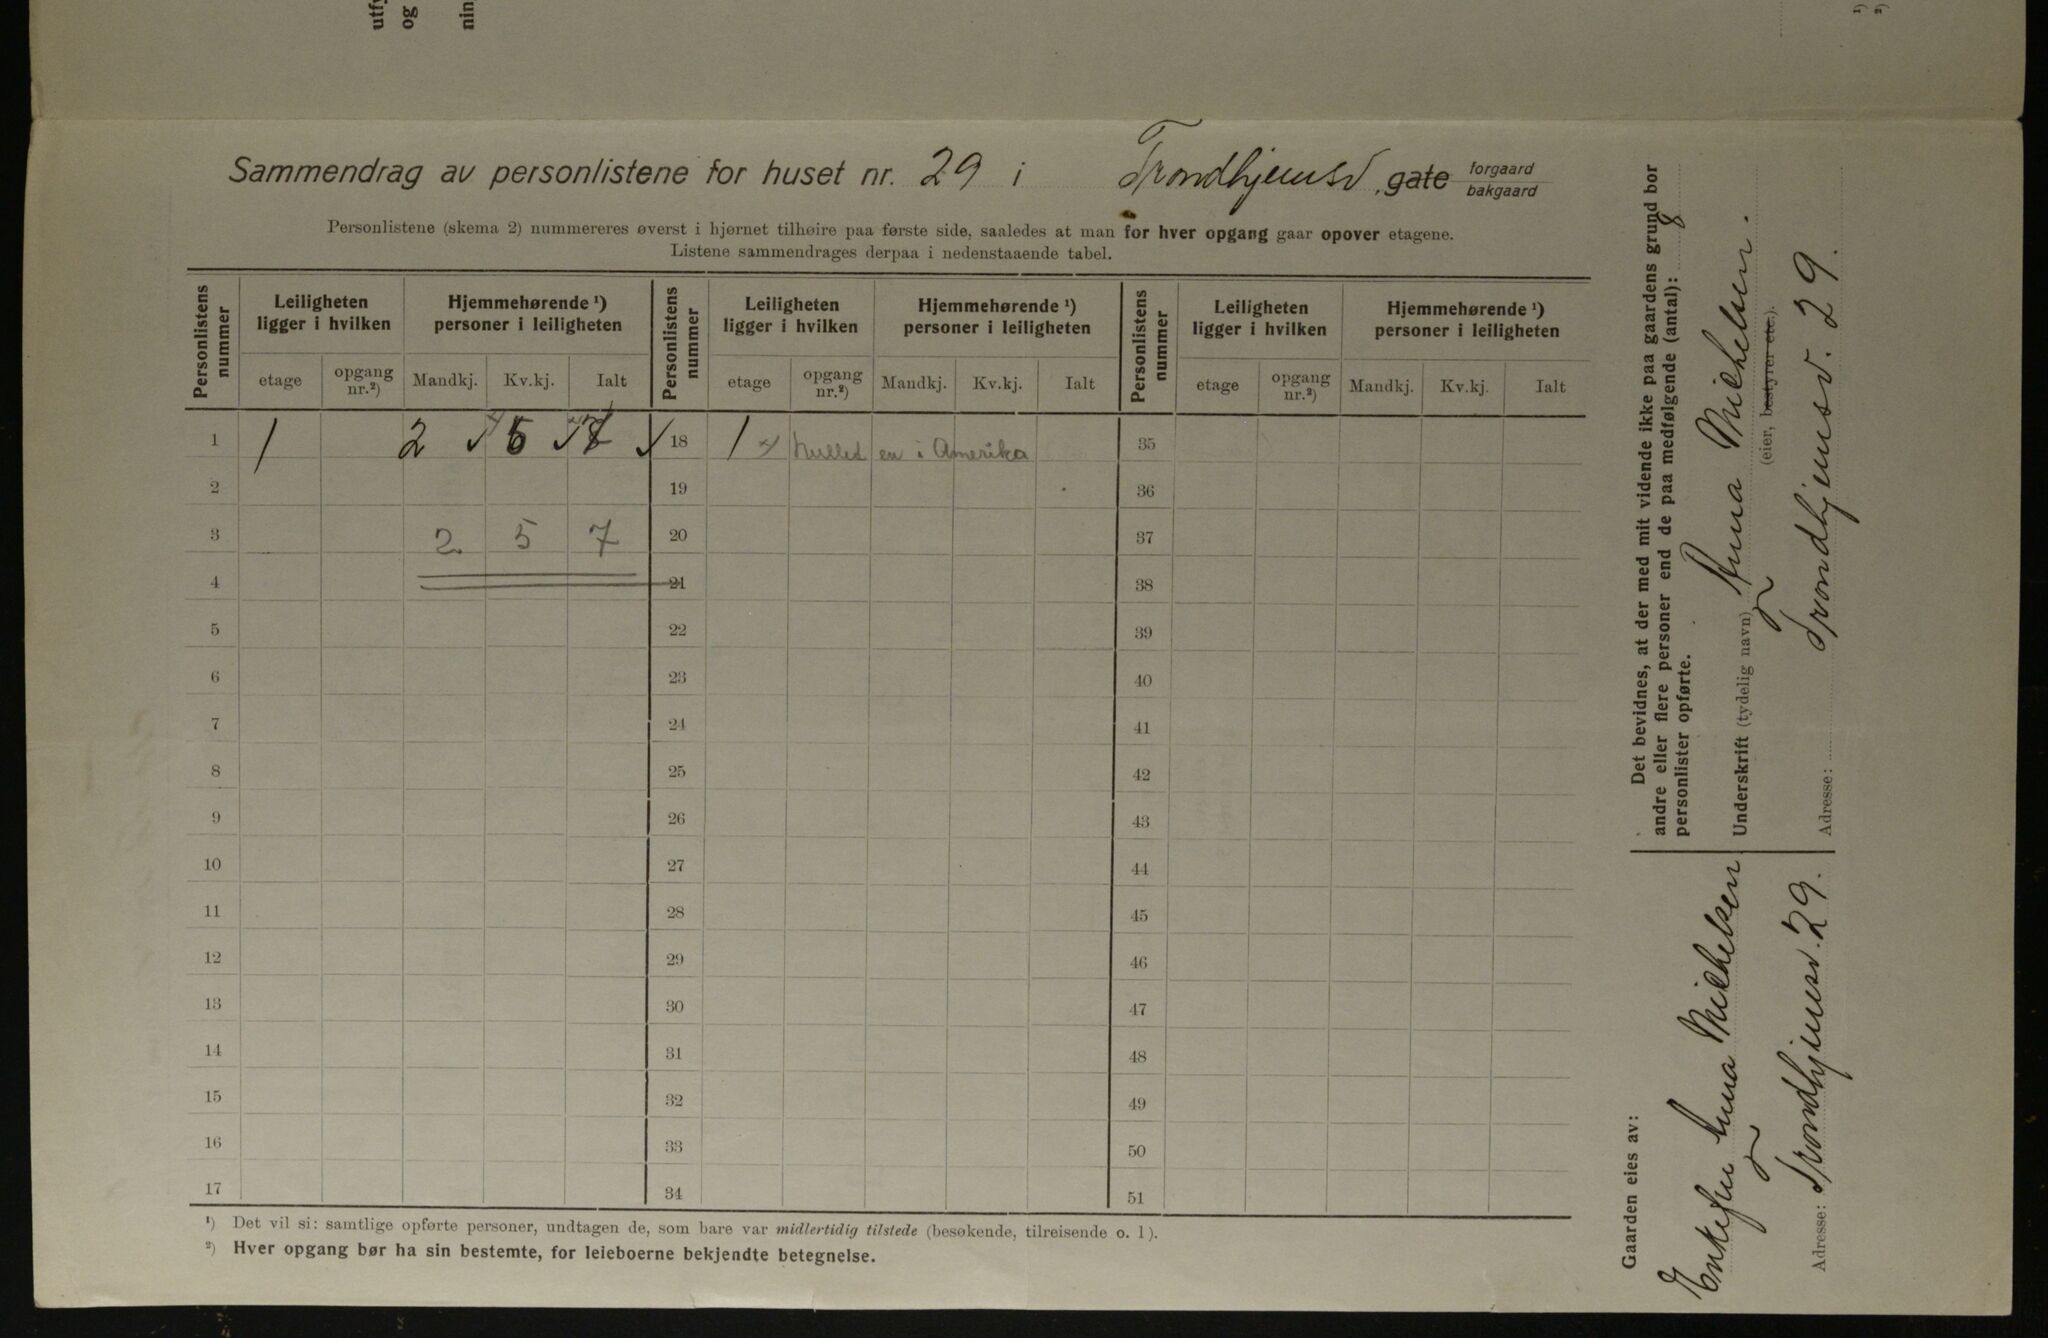 utfy
og
nin
¹)
²)
Sammendrag av personlistene for huset nr. 29 i Trondhjemsv. gate forgaard bakgaard
Personlistene (skema 2) nummereres øverst i hjørnet tilhøire paa første side, saaledes at man for hver opgang gaar opover etagene.
Listene sammendrages derpaa i nedenstaaende tabel.
Personlistens nummer Leiligheten ligger i hvilken Hjemmehørende ¹) personer i leiligheten Personlistens nummer Leiligheten ligger i hvilken Hjemmehørende ¹) personer i leiligheten Personlistens nummer Leiligheten ligger i hvilken Hjemmehørende ¹) personer i leiligheten
etage opgang nr.²) Mandkj. Kv.kj. Ialt etage opgang nr.²) Mandkj. Kv.kj. Ialt etage opgang nr.²) Mandkj. Kv.kj. Ialt
1 1 2 5 7 18 1 en i Amerika 35
2 19 36
3 2 5 7 20 37
4 21 38
5 22 39
6 23 40
7 24 41
8 25 42
9 26 43
10 27 44
11 28 45
12 29 46
13 30 47
14 31 48
15 32 49
16 33 50
17 34 51
¹) Det vil si: samtlige opførte personer, undtagen de, som bare var midlertidig tilstede (besøkende, tilreisende o. l).
²) Hver opgang bør ha sin bestemte, for leieboerne bekjendte betegnelse.
Det bevidnes, at der med mit vidende ikke paa gaardens grund bor
andre eller flere personer end de paa medfølgende (antal): 8
personlister opførte.
Underskrift (tydelig navn) Anna Mikkelsen.
(eier, bestyrer etc.).
Adresse: Trondhjemsv. 29.
Gaarden eies av:
Enkefru Anna Mikkelsen
Adresse: Trondhjemsv. 29.